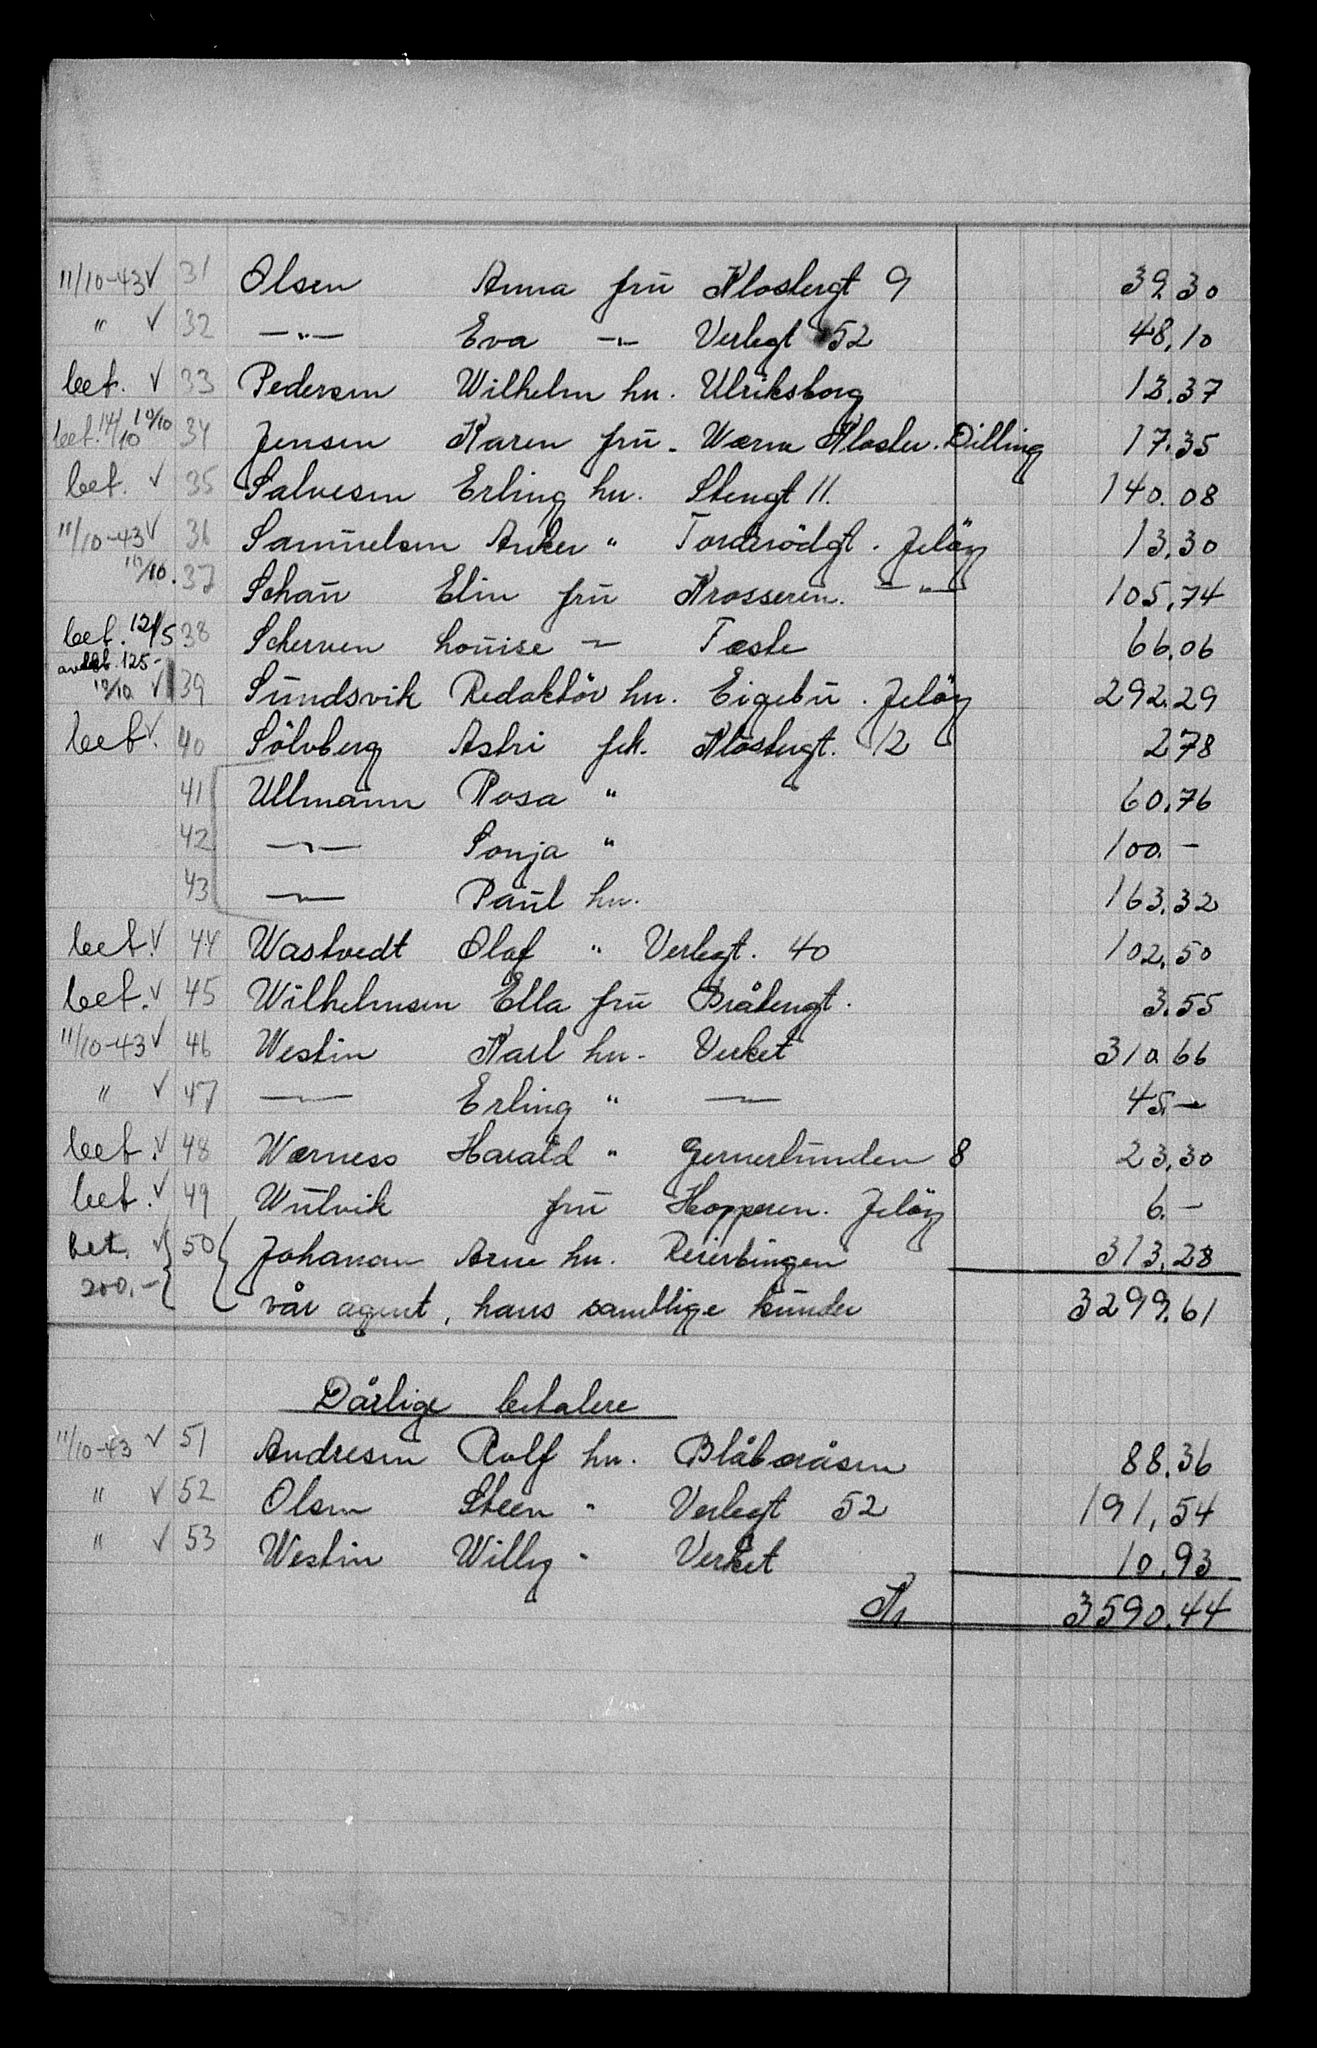 11/10-43 ✓ 31 Olsen Anna frü Klostergt 9 39.30
" ✓ 32 —"— Eva —"— Verlegt 52 48,10
bet. ✓ 33 Pedersen Wilhelm hr. Ulriksborg 13.37
bet. 14/10 10/10 34 Jensen Karen frü. Værne Kloster. Dilling 17.35
bet. ✓ 35 Salvesen Erling hr. Stengt 11. 140.08
11/10-43 ✓ 36 Samuelsen Anker " Torderödgt. Jelöy 13.30
10/10. 37 Schaü Elin frü Krosseren. —"— 105,74
bet. 12/5 38 Scherven Loüise —"— Tæste 66.06
avdgb. 125-
10/10 ✓ 39 Sündsvik Redaktör hr. Eigebü. Jelöy 292.29
bet ✓. 40 Sölvberg Astri frk. Klostergt. 12 2.78
41 Ullmann Rosa " 60.76
42 —"— Sonja " 100.-
43 —"— Paül hr. 163.32
bet. ✓ 44 Wastvedt Olaf " Verlegt. 40 102.50
bet. ✓ 45 Wilhelmsen Ella frü Bråtengt. 3.55
11/10-43 ✓ 46 Westin Karl hr. Verket 310.66
" ✓ 47 —"— Erling " —"— 45.-
bet. ✓ 48 Værness Harald " Gernerlünden 8 23.30
bet. ✓ 49 Wülvik frü Hopperen. Jelöy 6.-
bet. ✓ 50 Johansen Arne hr. Reierbingen 313.28
200.- vår agent, hans samtlige künder 3299.61
Dårlige betalere
11/10-43 ✓ 51 Andresen Rolf hr. Blåbæråsen 88.36
" ✓ 52 Olsen Steen " Verlegt 52 191,54
" ✓ 53 Westin Willy " Verket 10.93
Kr 3590.44